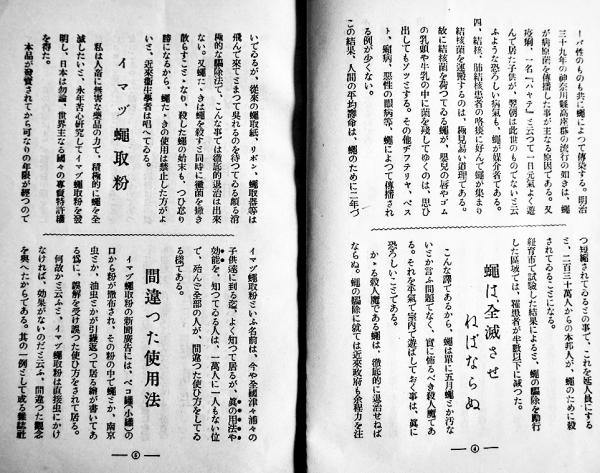 ーバ性のものも共に蠅によつて傳染する。明治
三十九年の神奈川縣高座郡の流行の如きは、蠅
が病原菌を傳播した事が主なる原因である。又
疫痢、一名『ハヤテ』と云つて一日元氣よく遊
んで居た子供が、翌朝は此世のものでないと云
ふような恐ろしい病氣も、蠅が媒介者である。
四、結核、肺結核患者の喀痰に好んで蠅が集まり
結核菌を運搬するのは、極見易い道理である。
故に結核菌を荷つてゐる蠅が、嬰兒の唇やゴム
の乳頭や牛乳の中に菌を殘してゆくのは、思ひ
出してもゾツとする。その他ヂフテリヤ、ペス
ト、癩病、惡性の眼病等、蠅によつて傳播され
る例が少くない。
この結果、人間の平均壽命は、蠅のために二年づ
つ短縮されてゐるとの事で、これを延人員にする
と、二百三十萬人からの本邦人が、蠅のために殺
されてゐることになる。
紐育市で試驗した結果によると、蠅の驅除を勵行
した區域では、罹患者が半數以下に減つた。
蠅は全滅させ
ねばならぬ
こんな譯であるから、蠅は單に五月蠅とか汚な
いとか言ふ問題でなく、實に怖るべき殺人魔であ
る。それを平氣で室内で遊ばしておく事は、眞に
恐ろしいことである。
かゝる殺人魔である蠅は、徹底的に退治せねば
ならぬ。蠅の驅除に就ては近來政府も余程力を注
―④―
いでゐるが、從來の蠅取紙、リボン、蠅取器等は
飛んで來てとまつて吳れるのを待つてゐる頗る消
極的な驅除法で、こんな事では徹底的退治は出來
ない。又蠅たゝきは蠅を殺すと同時に黴菌を撒き
散らすことゝなり、殺した蠅の始末も、つひ怠り
勝になるから、蠅たゝきの使用は禁止した方がよ
いと、近來衞生學者は唱へてゐる。
イマヅ蠅取粉
私は人畜に無害な藥品の力で、積極的に蠅を全
滅したいと、永年苦心硏究してイマヅ蠅取粉を發
明し、日本は勿論、世界主なる國々の專賣特許權
を得た。
本品が發賣されてから可なりの年限が經つので
イマヅ蠅取粉といふ名前は、今や全國津々浦々の
子供達に到る迄、よく知つて居るが、眞の用法や
効能を、知つてゐる人は、一萬人に一人もない位
で、殆んど全部の人が、間違つた使ひ方をしてゐ
る樣である。
間違つた使用法
イマヅ蠅取粉の新聞廣告には、ベコ罐(小罐)の
口から粉が撒布され、その粉の中で蠅とか、南京
虫とか、油虫とかが引繰返つて居る繪が書いてあ
る爲に、誤解を受け誤つた使ひ方をされて居る。
何故かと云ふと、イマヅ蠅取粉は直接虫にかけ
なければ、効果がないのだと云ふ、間違つた觀念
を與へたからである。其の一例として或る雜誌社
―⑤―